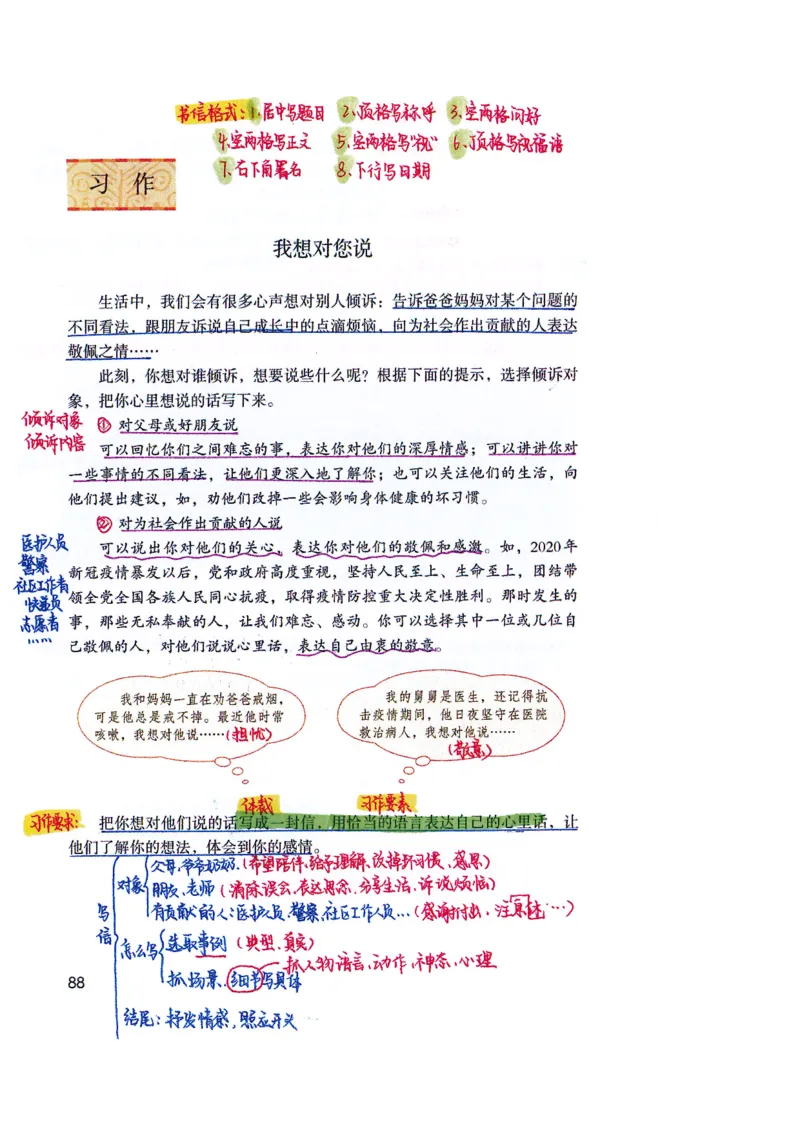 书信格式：1.居中写题目 2.顶格写称呼 3.空两格问好
4.空两格写正文 5.空两格写“祝” 6.顶格写祝福语
7.右下角署名 8.下行写日期
习 作
我想对您说
生活中，我们会有很多心声想对别人倾诉：告诉爸爸妈妈对某个问题的
不同看法，跟朋友诉说自己成长中的点滴烦恼，向为社会作出贡献的人表达
敬佩之情……
此刻，你想对谁倾诉，想要说些什么呢？根据下面的提示，选择倾诉对
象，把你心里想说的话写下来。
倾诉对象
倾诉内容
① 对父母或好朋友说
可以回忆你们之间难忘的事，表达你对他们的深厚情感；可以讲讲你对
一些事情的不同看法，让他们更深入地了解你；也可以关注他们的生活，向
他们提出建议，如，劝他们改掉一些会影响身体健康的坏习惯。
② 对为社会作出贡献的人说
医护人员
警察
社区工作者
快递员
志愿者
……
可以说出你对他们的关心，表达你对他们的敬佩和感激。如，2020年
新冠疫情暴发以后，党和政府高度重视，坚持人民至上、生命至上，团结带
领全党全国各族人民同心抗疫，取得疫情防控重大决定性胜利。那时发生的
事，那些无私奉献的人，让我们难忘、感动。你可以选择其中一位或几位自
己敬佩的人，对他们说说心里话，表达自己由衷的敬意。
我和妈妈一直在劝爸爸戒烟，
可是他总是戒不掉。最近他时常
咳嗽，我想对他说……（担忧）
我的舅舅是医生，还记得抗
击疫情期间，他日夜坚守在医院
救治病人，我想对他说……
（敬意）
体裁 习作要素
习作要求：
把你想对他们说的话写成一封信，用恰当的语言表达自己的心里话，让
他们了解你的想法，体会到你的感情。
写信
对象
父母、爷爷奶奶（希望陪伴、给予理解、改掉坏习惯、感恩）
朋友、老师（消除误会、表达思念、分享生活、诉说烦恼）
有贡献的人：医护人员、警察、社区工作人员…（感谢付出，
怎么写
选取事例（典型、真实）
抓人物语言、动作、神态、心理
抓场景、细节写具体
结尾：抒发情感，照应开头
88